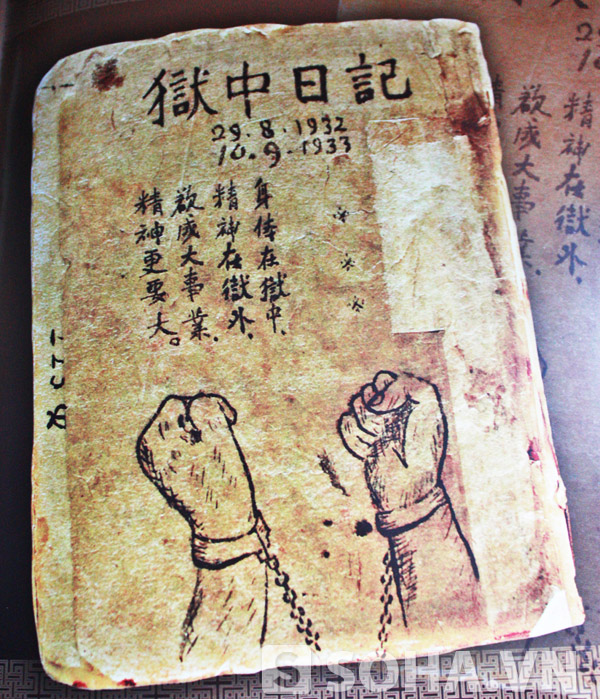 獄中日記
29.8.1932
10.9.1933
身体在獄中、
精神在獄外、
欲成大事業、
精神更要大。
精神在獄外、
欲成大事業、
SOHA.VN